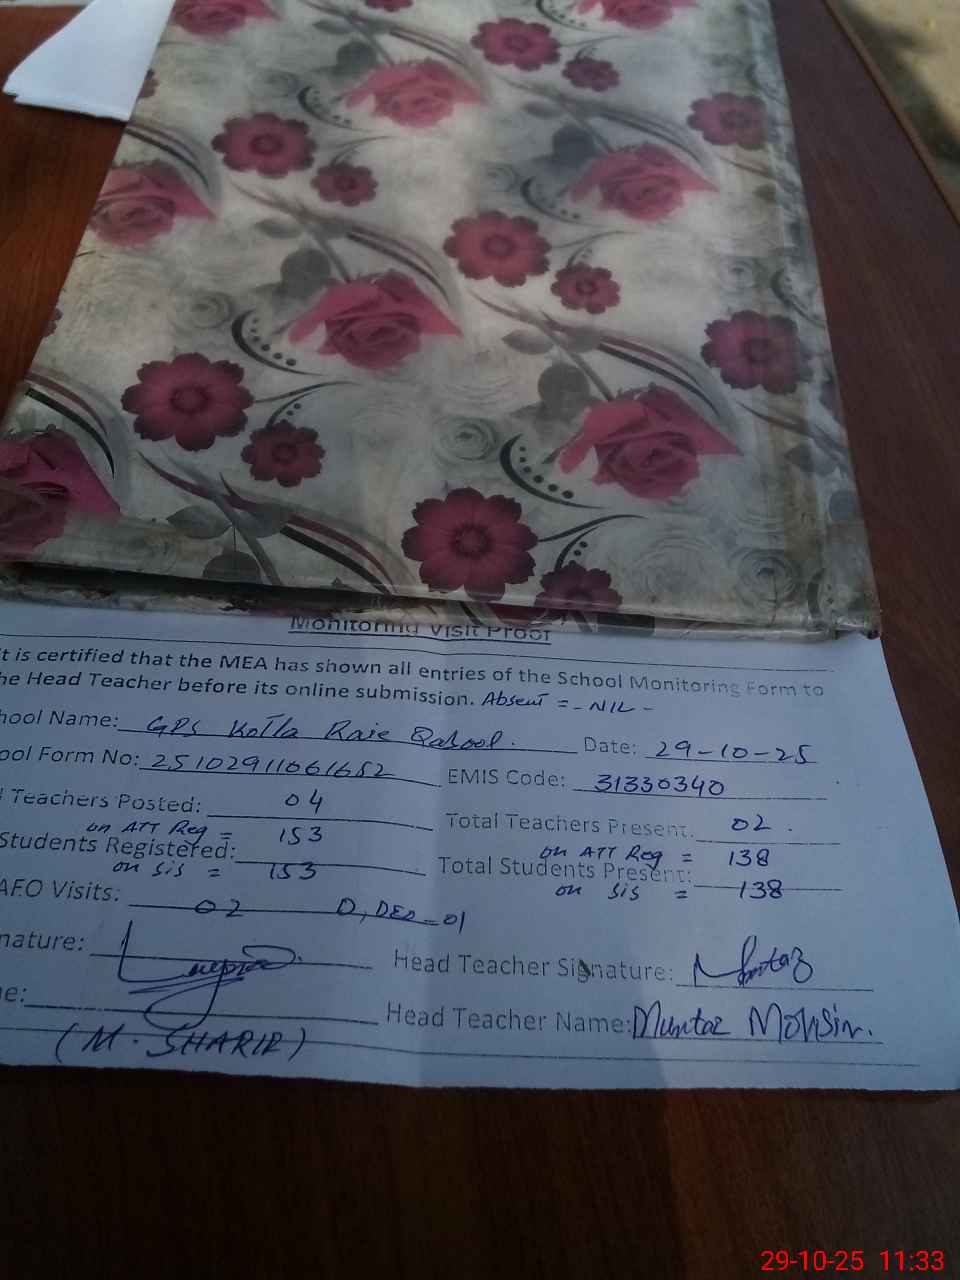 Monitoring Visit Proof
t is certified that the MEA has shown all entries of the School Monitoring Form to
he Head Teacher before its online submission. Absent = - NIL -
hool Name: GPS Kotla Raie Qabool. Date: 29-10-25
ool Form No: 25102911061652 EMIS Code: 31330340
Teachers Posted: 04 Total Teachers Present: 02.
on ATT Reg = 153 on ATT Reg = 138
Students Registered: Total Students Present:
on sis = 153 on sis = 138
AEO Visits: 02 D,DEO=01
nature: Head Teacher Signature: Mumtaz
e: Head Teacher Name: Mumtaz Mohsin.
(M. SHARIF)
29-10-25 11:33